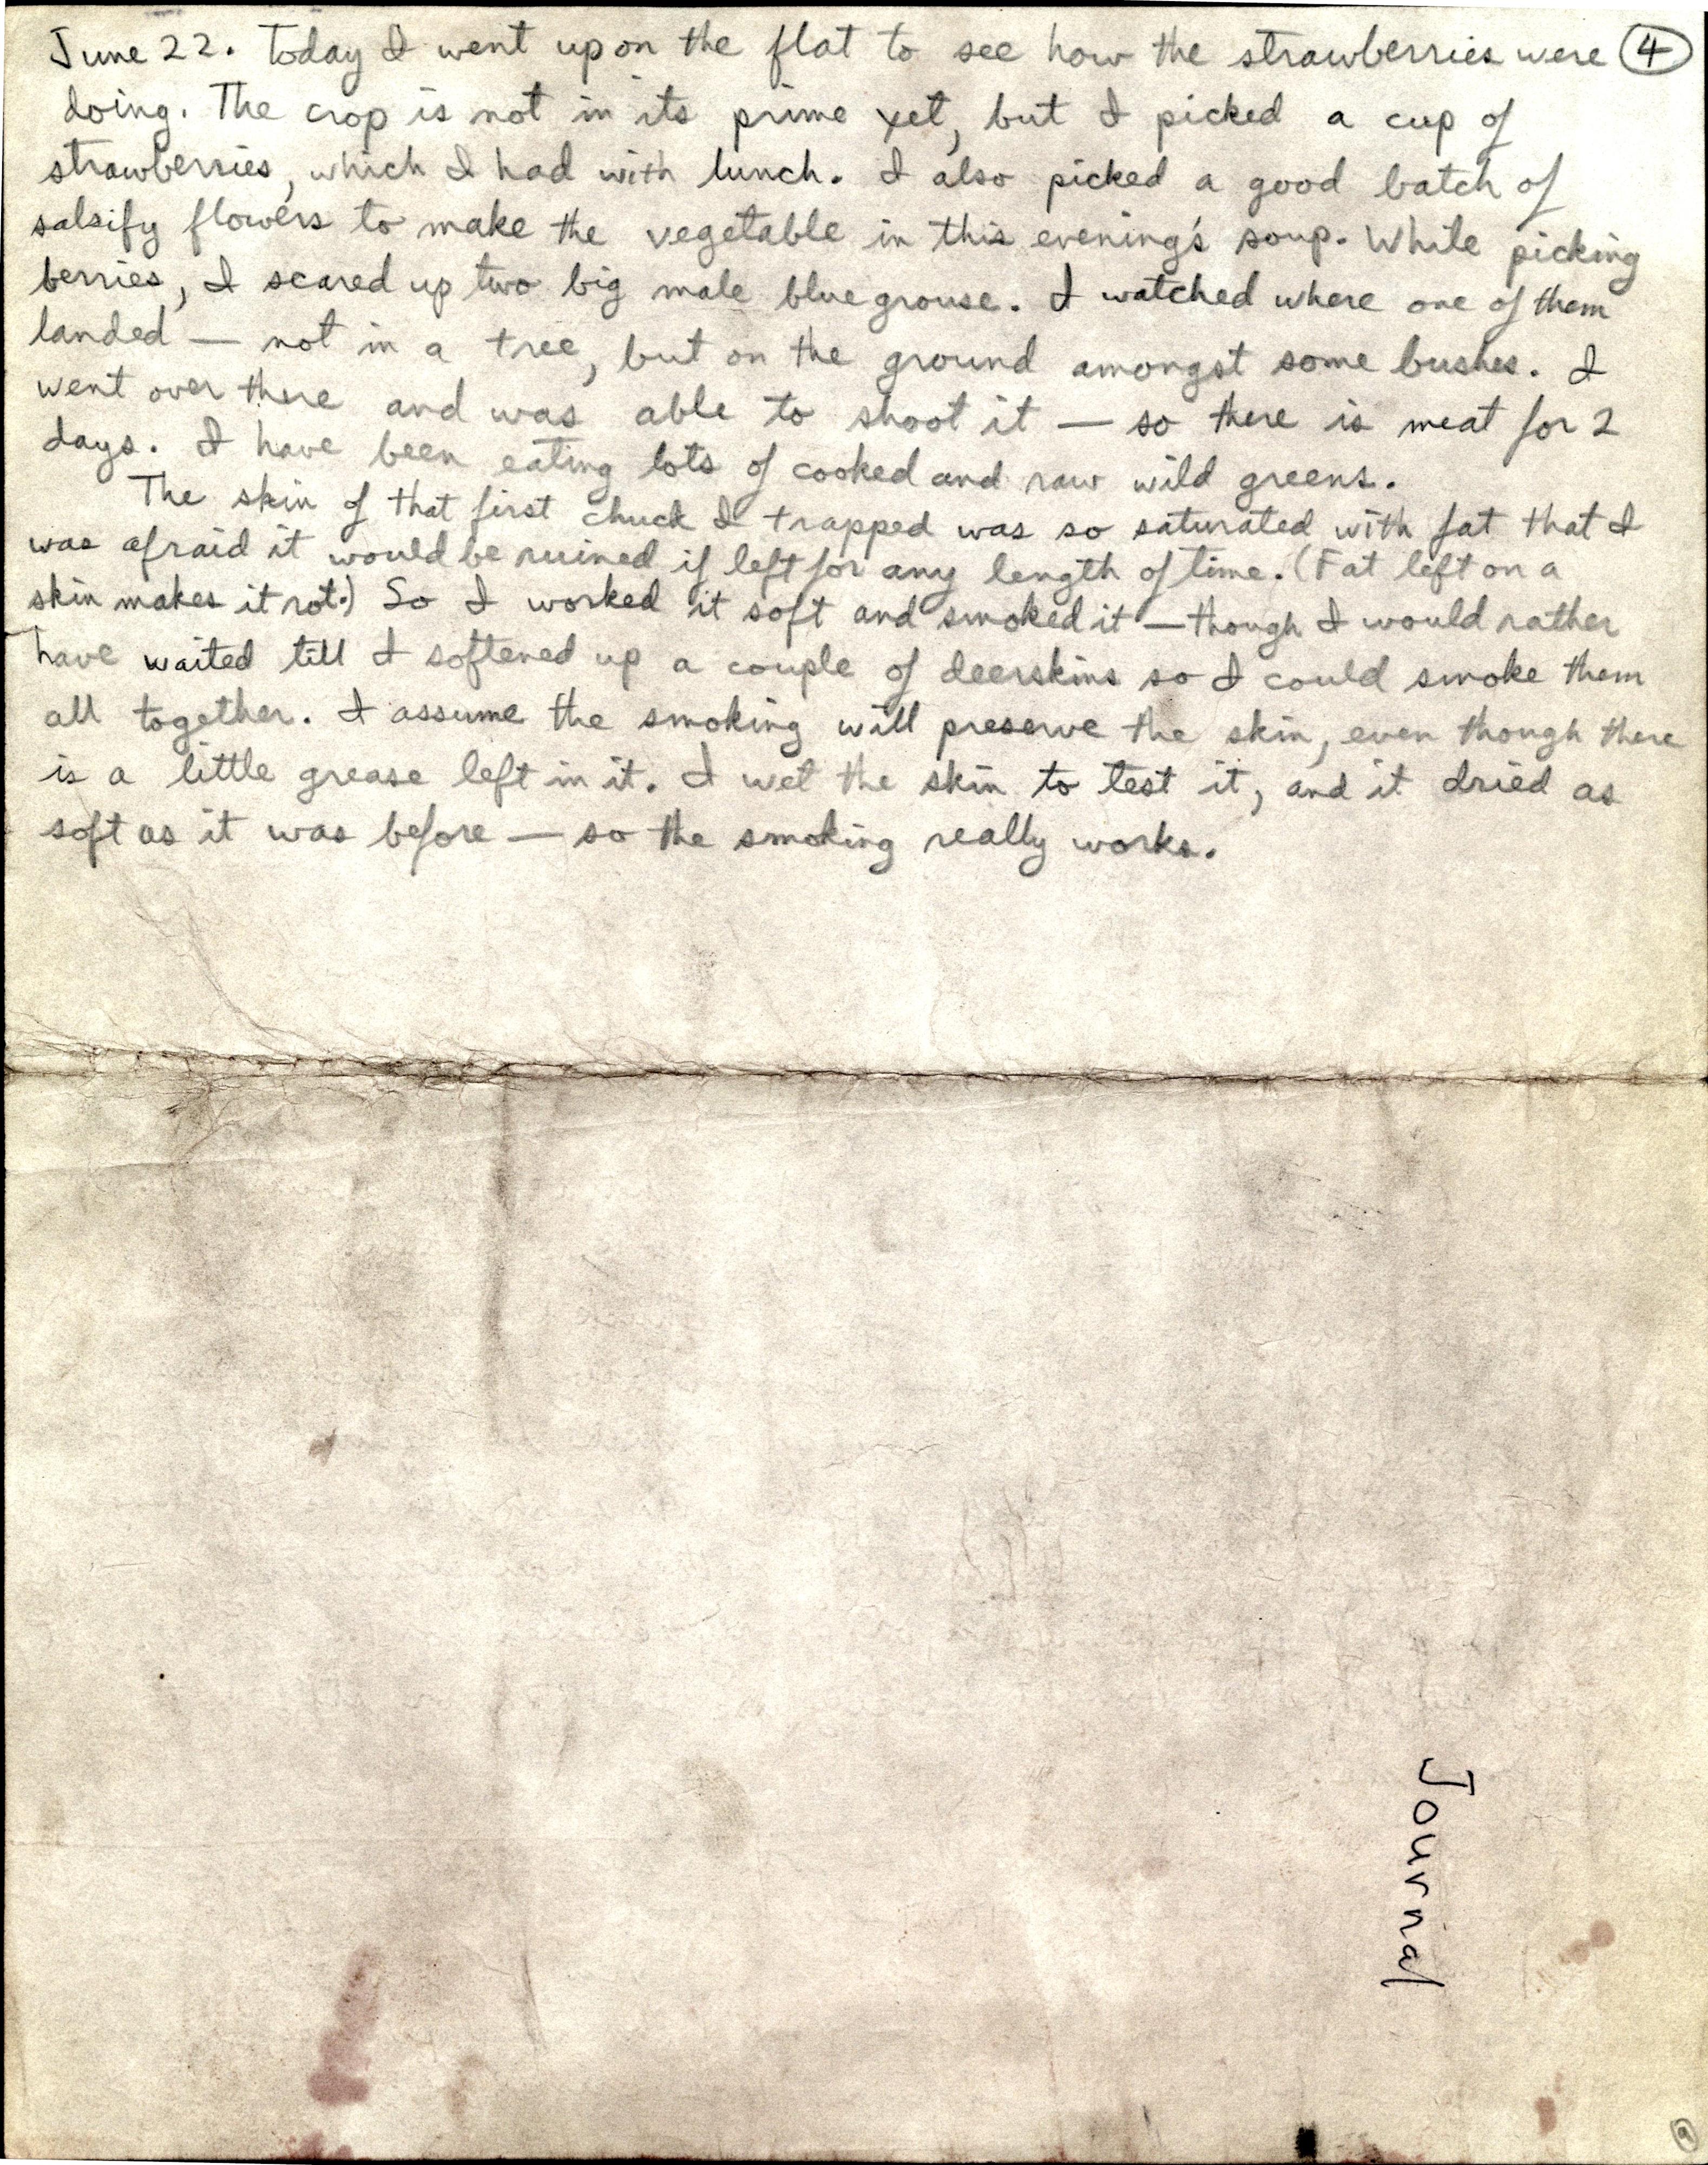 June 22. Today I went up on the flat to see how the strawberries were 4
doing. The crop is not in its prime yet, but I picked a cup of
strawberries, which I had with lunch. I also picked a good batch of
salsify flowers to make the vegetable in this evening's soup. While picking
berries, I scared up two big male blue grouse. I watched where one of them
landed — not in a tree, but on the ground amongst some bushes. I
went over there and was able to shoot it — so there is meat for 2
days. I have been eating lots of cooked and raw wild greens.
The skin of that first chuck I trapped was so saturated with fat that I
was afraid it would be ruined if left for any length of time. (Fat left on a
skin makes it rot.) So I worked it soft and smoked it — though I would rather
have waited till I softened up a couple of deerskins so I could smoke them
all together. I assume the smoking will preserve the skin, even though there
is a little grease left in it. I wet the skin to test it, and it dried as
soft as it was before — so the smoking really works.
Journal